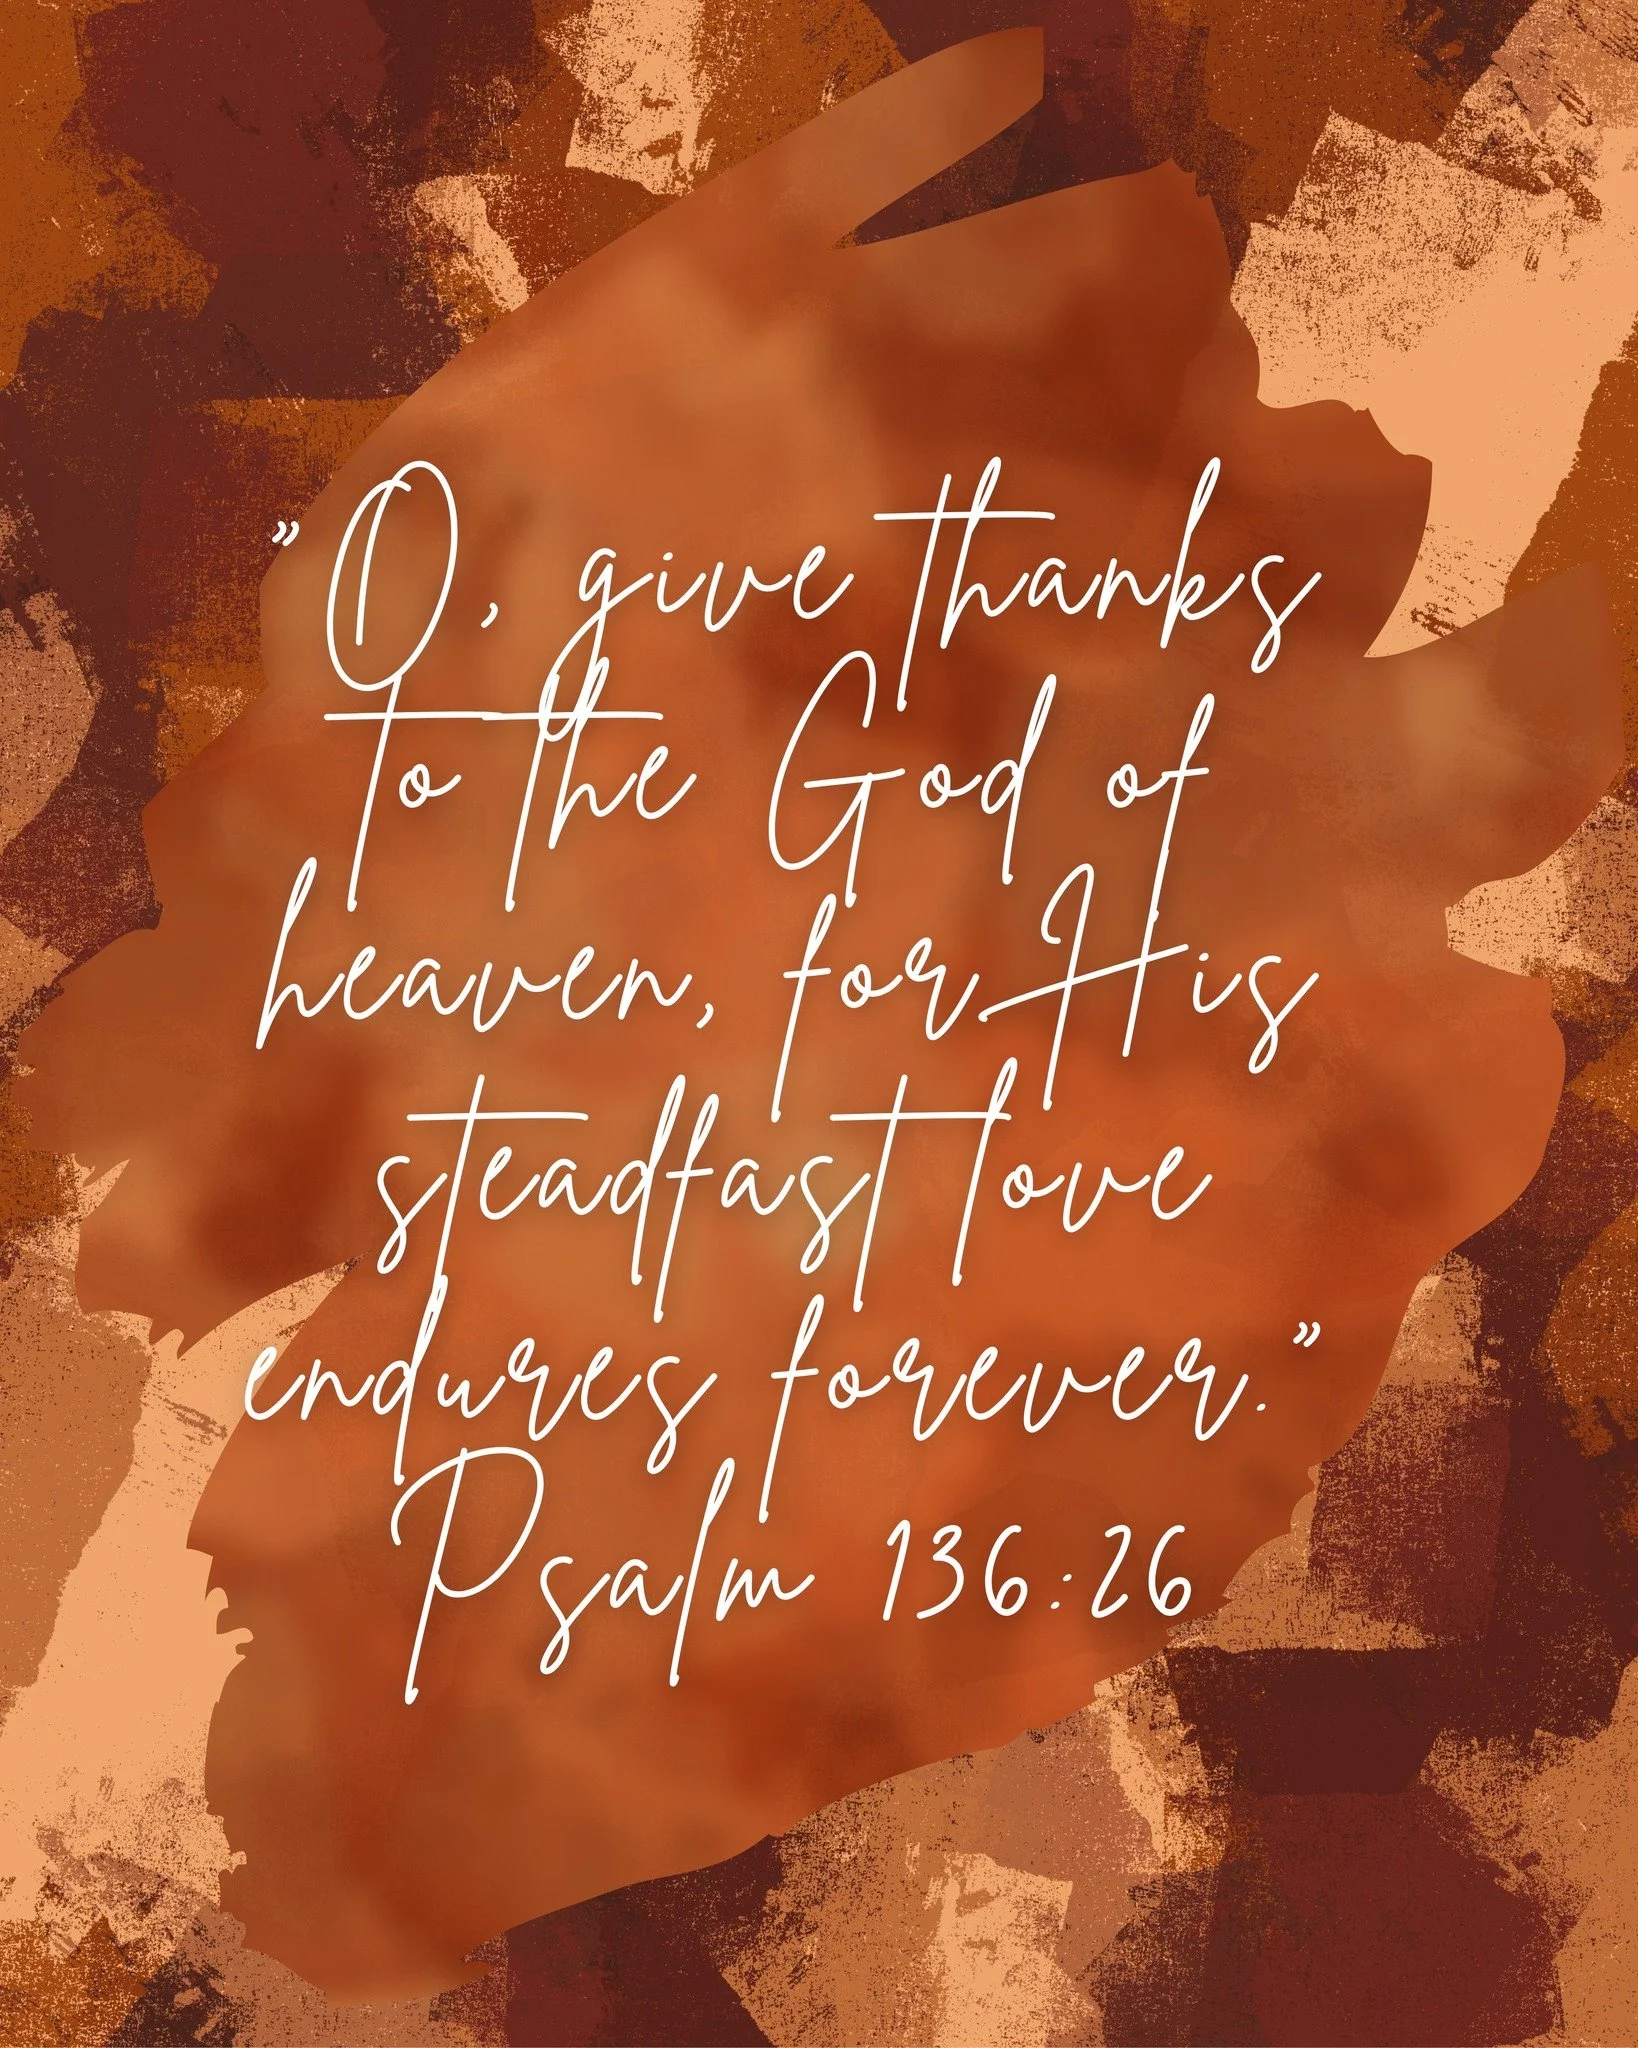 "O, give thanks
to the God of
heaven, for His
steadfast love
endures forever."
Psalm 136:26